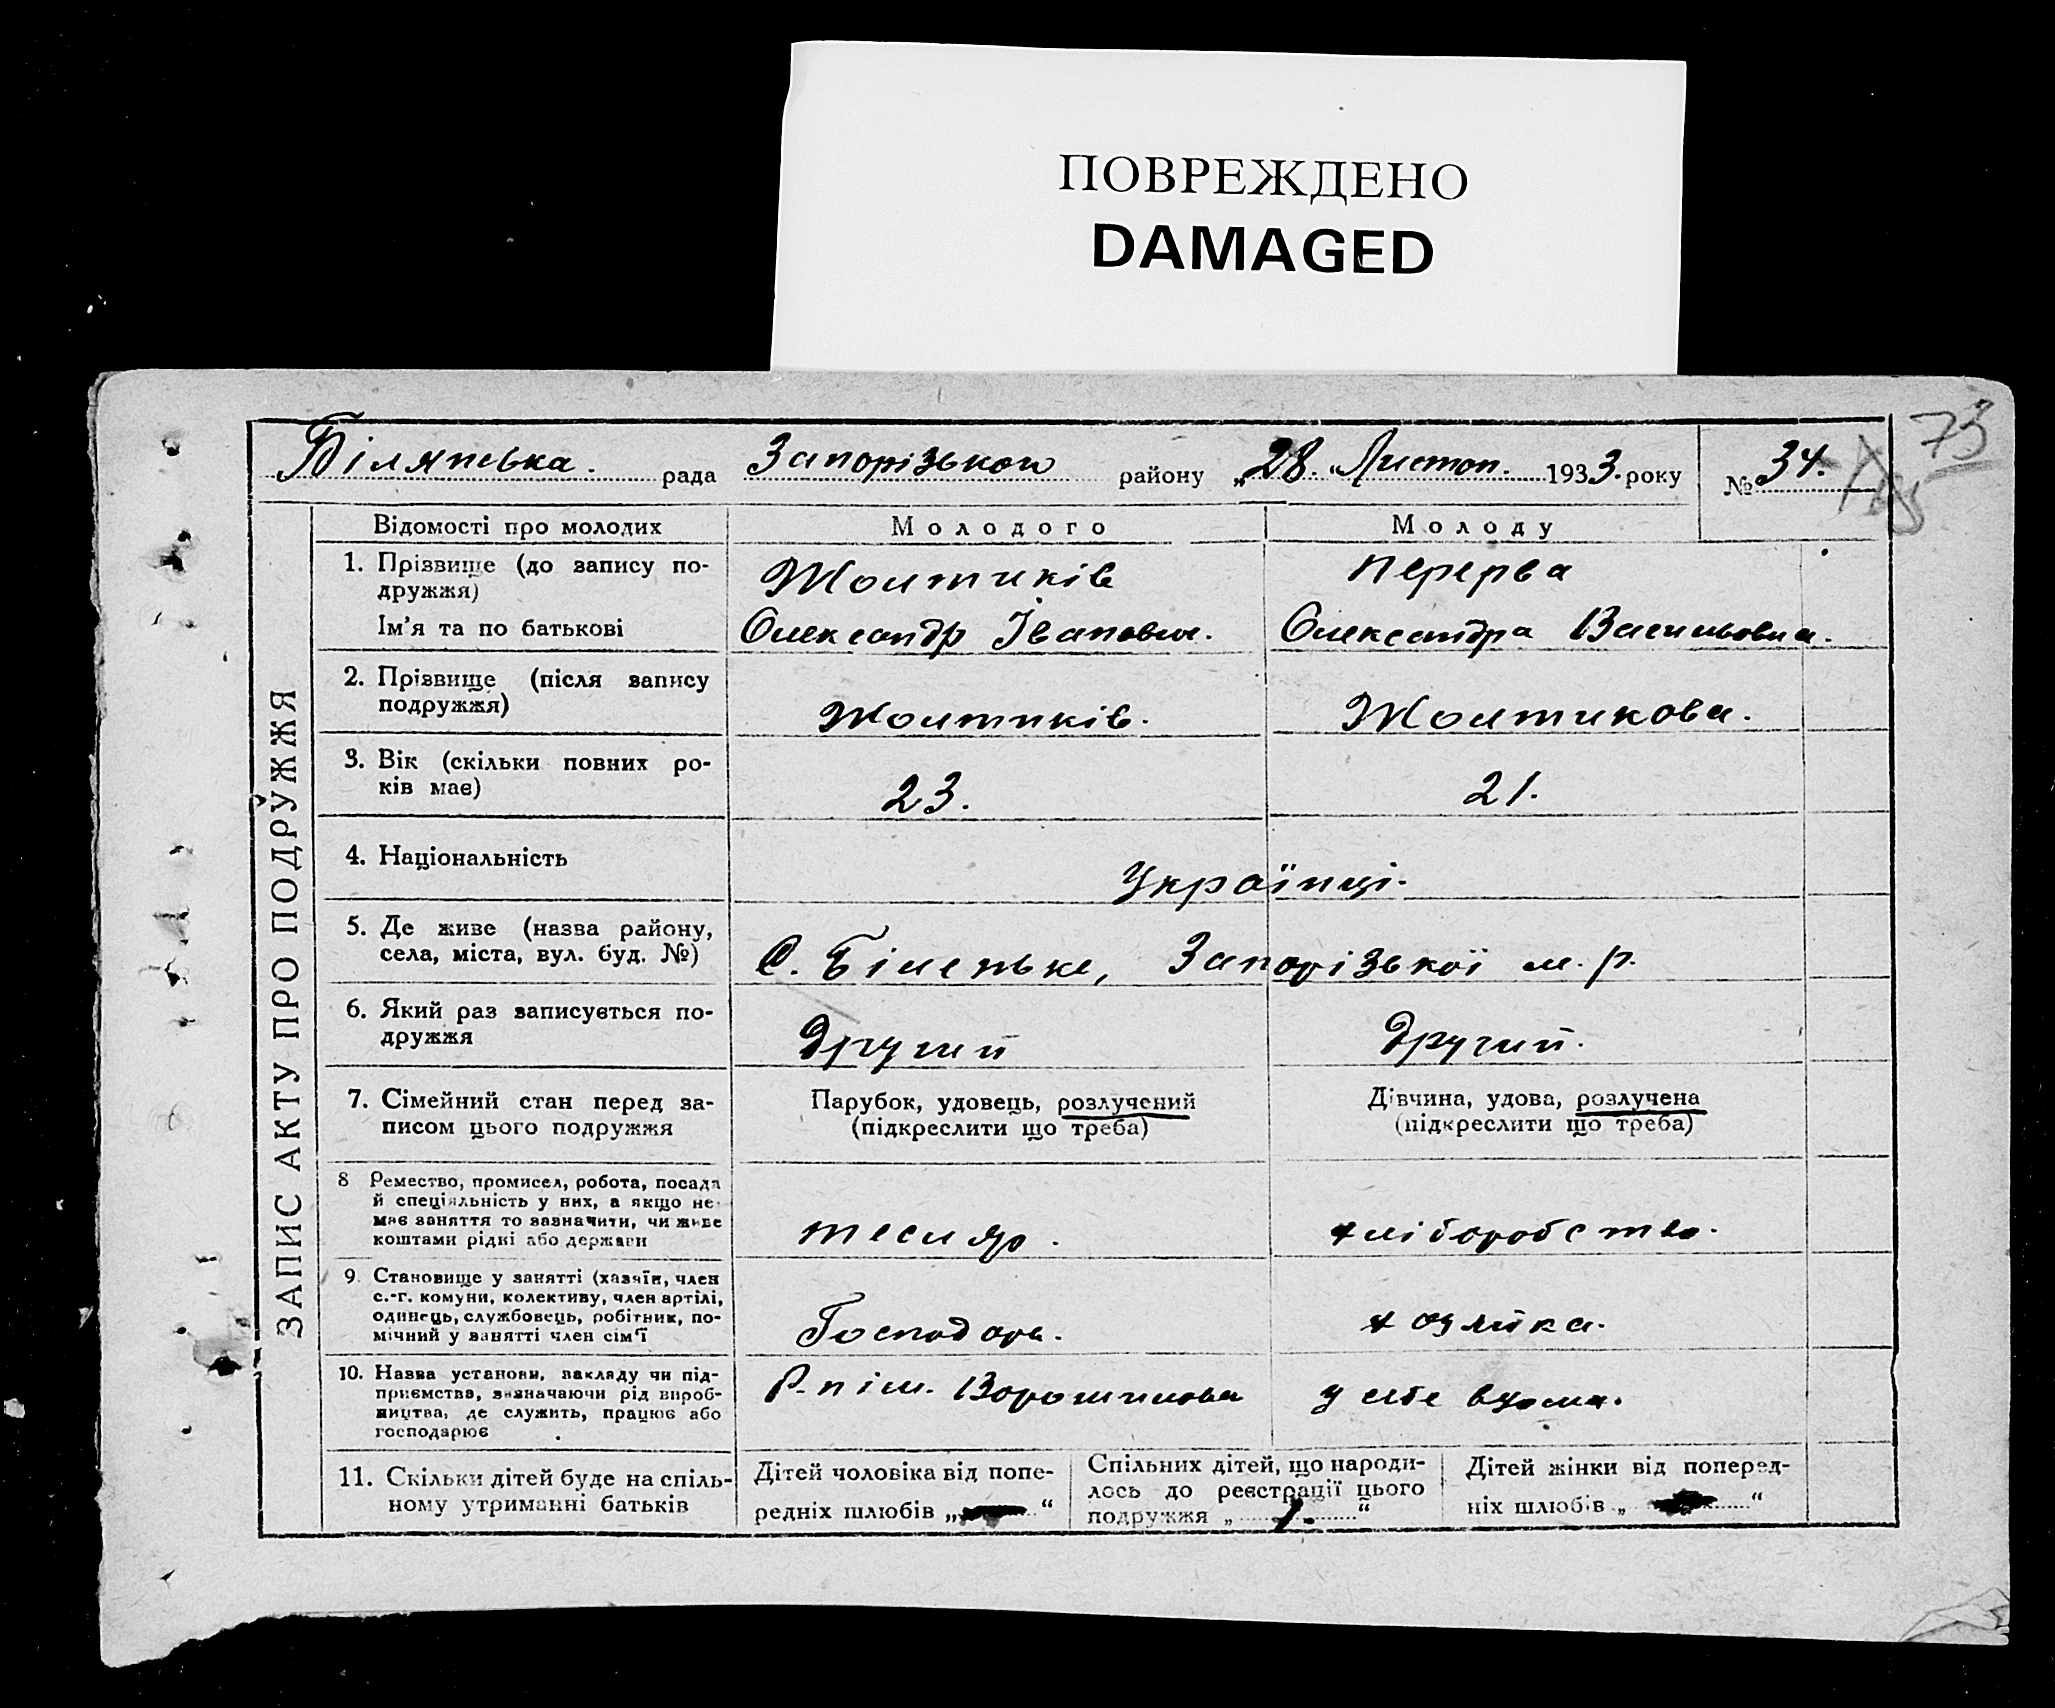 ПОВРЕЖДЕНО
DAMAGED
73
Білянська. рада Запорізького району „28.“ Листоп. 1933. року № 34.
ЗАПИС АКТУ ПРО ПОДРУЖЖЯ
Відомості про молодих Молодого Молоду
1. Прізвище (до запису по-
дружжя) Жолтиків Перерва
Ім'я та по батькові Олександр Іванович. Олександра Васильовна.
2. Прізвище (після запису
подружжя) Жолтиків. Жолтикова.
3. Вік (скільки повних ро-
ків має) 23. 21.
4. Національність Українці.
5. Де живе (назва району,
села, міста, вул. буд. №) С. Біленьке, Запорізької м. р.
6. Який раз записується по-
дружжя Другий Другий.
7. Сімейний стан перед за- Парубок, удовець, розлучений Дівчина, удова, розлучена
писом цього подружжя (підкреслити що треба) (підкреслити що треба)
8 Ремество, промисел, робота, посада
й спеціяльність у них, а якщо не
має заняття то зазначити, чи живе
коштами рідні або держави тесляр. хліборобство.
9. Становище у занятті (хазяїн, член
с.-г. комуни, колективу, член артілі,
одинець, службовець, робітник, по-
мічний у занятті член сім'ї Господарь. хозяйка.
10. Назва установи, закладу чи під-
приємства, зазначаючи рід вироб-
ництва, де служить, працює або
господарює Р. п ім. Ворошилова у себе вдома.
11. Скільки дітей буде на спіль-
ному утриманні батьків
Дітей чоловіка від попе-
редніх шлюбів „ “
Спільних дітей, що народи-
лось до реєстрації цього
подружжя „ 1. “
Дітей жінки від поперед-
ніх шлюбів „ “